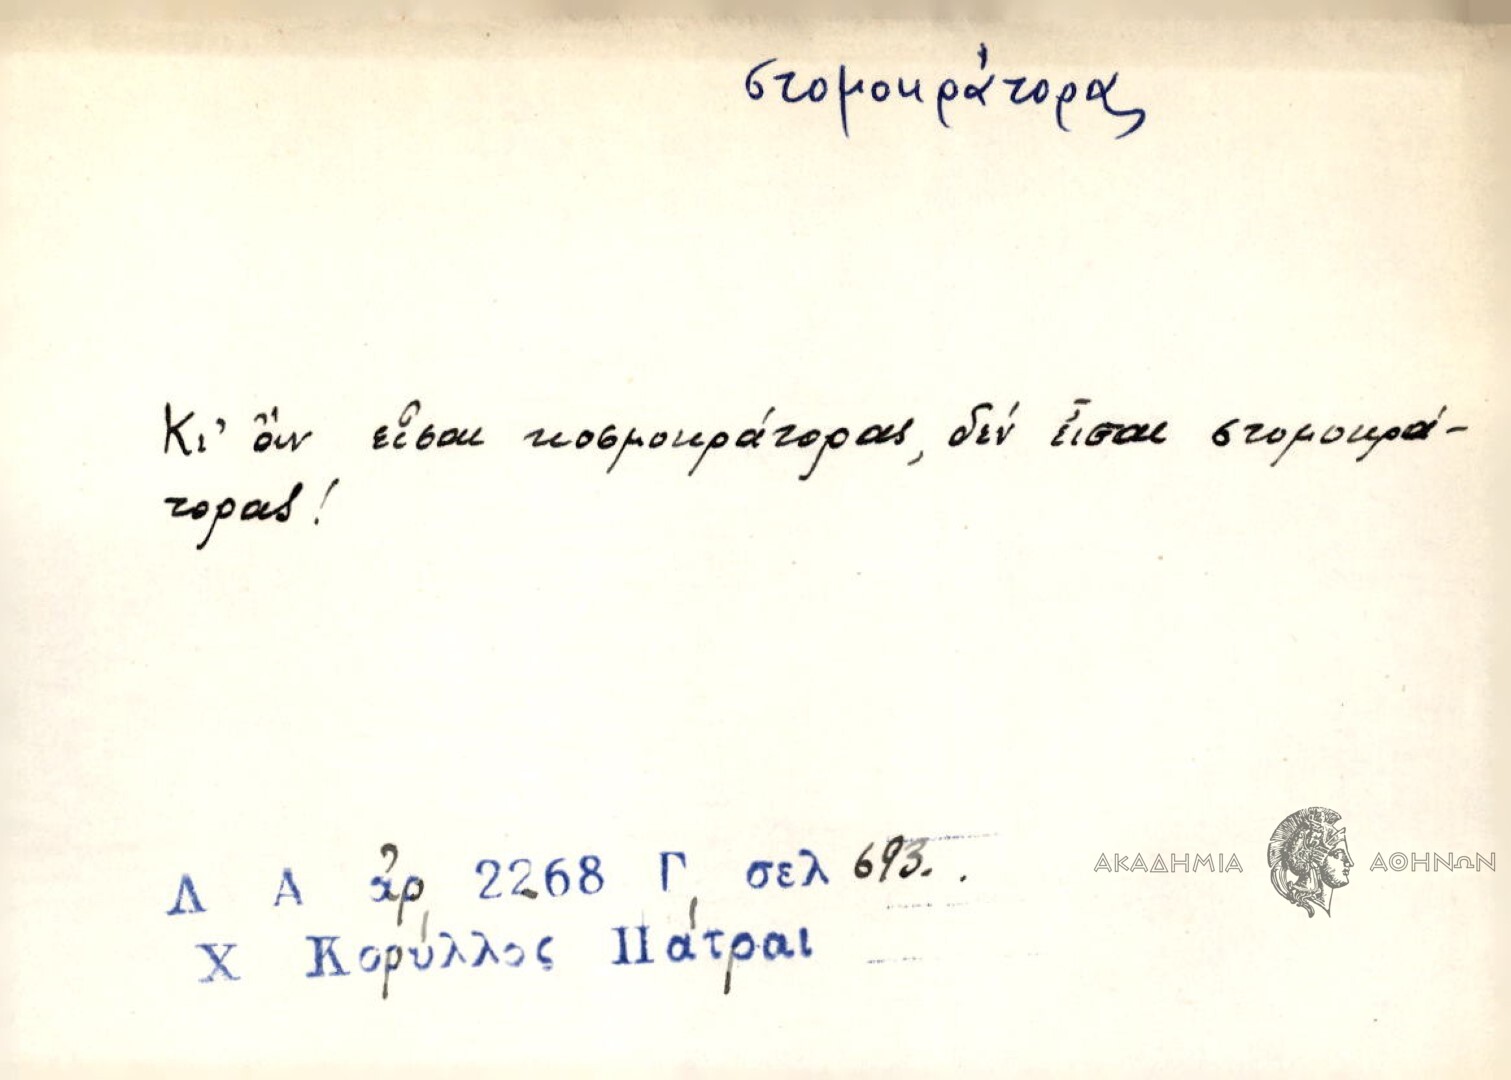 στομοκράτορας
Κι' ἄν εἶσαι κοσμοκράτορας, δέν εἶσαι στομοκρά-
τορας!
Λ Α ἀρ 2268 Γ σελ 693.
Χ Κορύλλος Πάτραι
ΑΚΑΔΗΜΙΑ ΑΘΗΝΩΝ